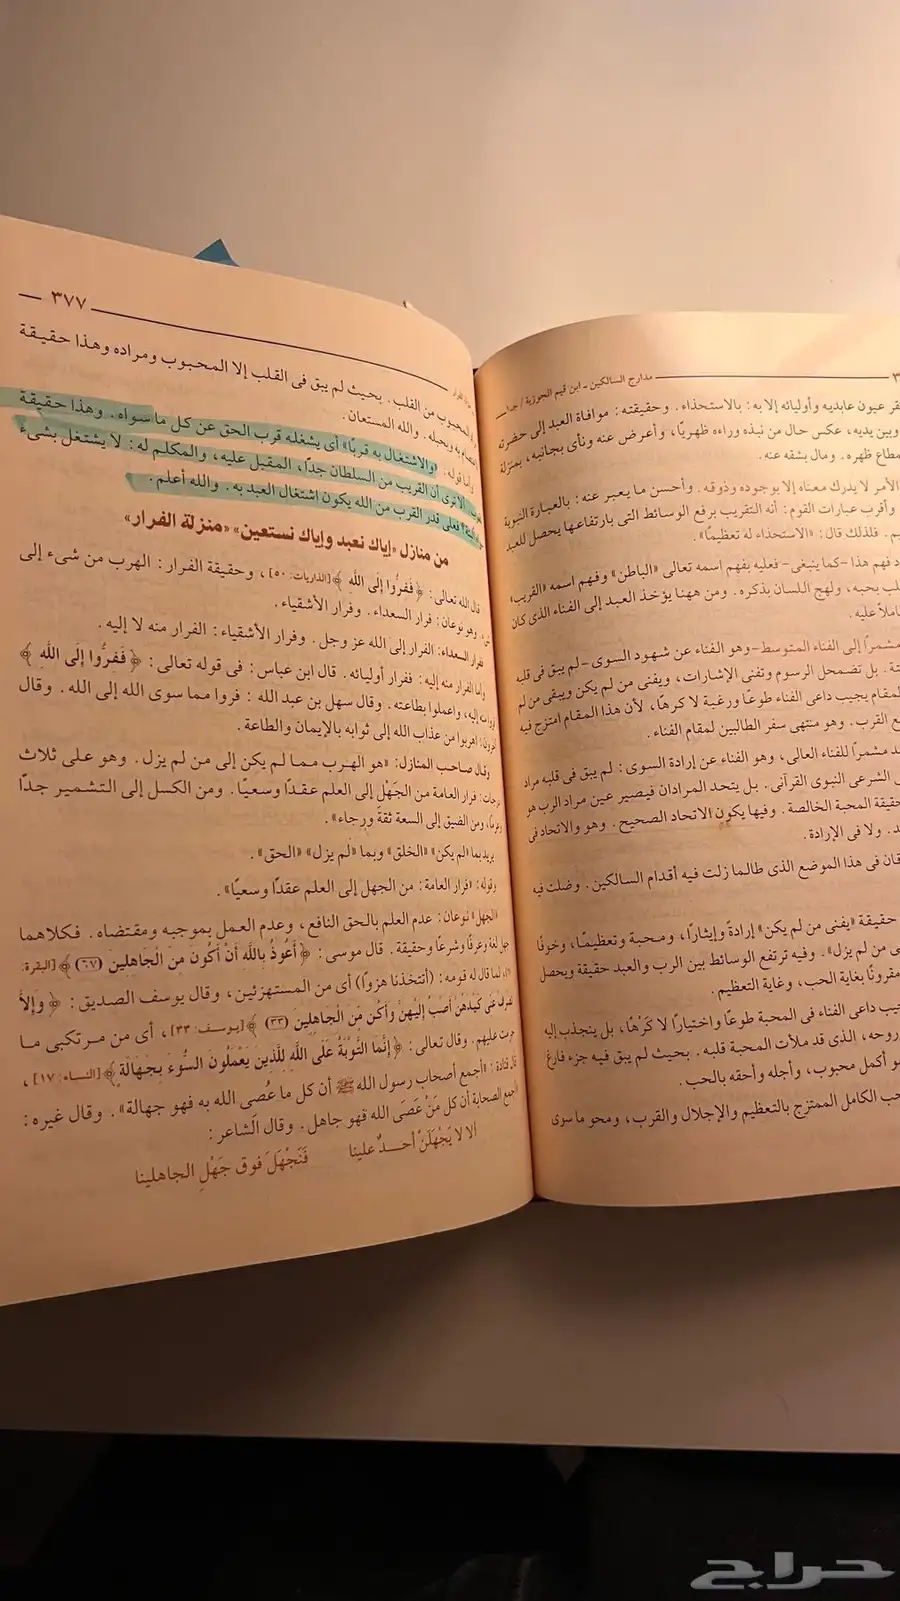 مدارج السالكين - ابن قيم الجوزية / جـ١
قر عيون عابديه وأوليائه إلا به: بالاستحذاء. وحقيقته: موافاة العبد إلى حضرته
وبين يديه، عكس حال من نبذه وراءه ظهريًا، وأعرض عنه ونأى بجانبه، بمنزلة
مطاع ظهره. ومال بشقه عنه.
الأمر لا يدرك معناه إلا بوجوده وذوقه. وأحسن ما يعبر عنه: بالعبارة النبوية
وأقرب عبارات القوم: أنه التقريب برفع الوسائط التى بارتفاعها يحصل للعبد
فلذلك قال: «الاستحذاء له تعظيمًا».
فهم هذا -كما ينبغى- فعليه بفهم اسمه تعالى «الباطن» وفهم اسمه «القريب»
بحبه، ولهج اللسان بذكره. ومن ههنا يؤخذ العبد إلى الفناء الذى كان
عاملاً عليه.
مشمرًا إلى الفناء المتوسط -وهو الفناء عن شهود السوى- لم يبق فى قلبه
بل تضمحل الرسوم وتفنى الإشارات، ويفنى من لم يكن ويبقى من لم
المقام يجيب داعى الفناء طوعًا ورغبة لا كرهًا، لأن هذا المقام امتزج فيه
القرب. وهو منتهى سفر الطالبين لمقام الفناء.
مشمرًا للفناء العالى، وهو الفناء عن إرادة السوى: لم يبق فى قلبه مراد
الشرعى النبوى القرآنى. بل يتحد المرادان فيصير عين مراد الرب هو
حقيقة المحبة الخالصة. وفيها يكون الاتحاد الصحيح. وهو الاتحاد فى
ولا فى الإرادة.
فى هذا الموضع الذى طالما زلت فيه أقدام السالكين. وضلت فيه
حقيقة «يفنى من لم يكن» إرادةً وإيثارًا، ومحبة وتعظيمًا، وخوفًا
من لم يزل». وفيه ترتفع الوسائط بين الرب والعبد حقيقة ويحصل
مقرونًا بغاية الحب، وغاية التعظيم.
داعى الفناء فى المحبة طوعًا واختيارًا لا كرهًا، بل ينجذب إليه
روحه، الذى قد ملأت المحبة قلبه. بحيث لم يبق فيه جزء فارغ
أكمل محبوب، وأجله وأحقه بالحب.
الكامل الممتزج بالتعظيم والإجلال والقرب، ومحو ما سوى
٣٧٧
المحبوب من القلب. بحيث لم يبق فى القلب إلا المحبوب ومراده وهذا حقيقة
وبحبله. والله المستعان.
وأما قوله: «والاشتغال به قربًا» أى يشغله قرب الحق عن كل ما سواه. وهذا حقيقة
القرب. ألا ترى أن القريب من السلطان جدًا، المقبل عليه، والمكلم له: لا يشتغل بشىء
فعلى قدر القرب من الله يكون اشتغال العبد به. والله أعلم.
من منازل «إياك نعبد وإياك نستعين» «منزلة الفرار»
قال الله تعالى: ﴿فَفِرُّوا إِلَى اللَّهِ﴾ [الذاريات: ٥٠]، وحقيقة الفرار: الهرب من شىء إلى
شىء. وهو نوعان: فرار السعداء. وفرار الأشقياء.
ففرار السعداء: الفرار إلى الله عز وجل. وفرار الأشقياء: الفرار منه لا إليه.
وأما الفرار منه إليه: ففرار أوليائه. قال ابن عباس: فى قوله تعالى: ﴿فَفِرُّوا إِلَى اللَّهِ﴾
فروا منه إليه، واعملوا بطاعته. وقال سهل بن عبد الله: فروا مما سوى الله إلى الله. وقال
آخرون: اهربوا من عذاب الله إلى ثوابه بالإيمان والطاعة.
وقال صاحب المنازل: «هو الهرب مما لم يكن إلى من لم يزل. وهو على ثلاث
درجات: فرار العامة من الجَهْل إلى العلم عقدًا وسعيًا. ومن الكسل إلى التشمير جدًا
وعزمًا، ومن الضيق إلى السعة ثقةً ورجاء».
يريد بما «لم يكن» «الخلق» وبما «لم يزل» «الحق».
وقوله: «فرار العامة: من الجهل إلى العلم عقدًا وسعيًا».
«الجهل» نوعان: عدم العلم بالحق النافع، وعدم العمل بموجبه ومقتضاه. فكلاهما
جهل لغة وعرفًا وشرعًا وحقيقة. قال موسى: ﴿أَعُوذُ بِاللَّهِ أَنْ أَكُونَ مِنَ الْجَاهِلِينَ (٦٧)﴾ [البقرة:
لما قال له قومه: (أتتخذنا هزوًا) أى من المستهزئين، وقال يوسف الصديق: ﴿وَإِلَّا
تَصْرِفْ عَنِّي كَيْدَهُنَّ أَصْبُ إِلَيْهِنَّ وَأَكُن مِّنَ الْجَاهِلِينَ (٣٣)﴾ [يوسف: ٣٣]، أى من مرتكبى ما
حرمت عليهم. وقال تعالى: ﴿إِنَّمَا التَّوْبَةُ عَلَى اللَّهِ لِلَّذِينَ يَعْمَلُونَ السُّوءَ بِجَهَالَةٍ﴾ [النساء: ١٧]،
قال قتادة: «أجمع أصحاب رسول الله ﷺ أن كل ما عُصى الله به فهو جهالة». وقال غيره:
أجمع الصحابة أن كل مَنْ عَصَى الله فهو جاهل. وقال الشاعر:
ألا لا يَجْهَلَنْ أحـدٌ علينا فَنَجْهَلَ فوق جَهْلِ الجاهلينا
حراج